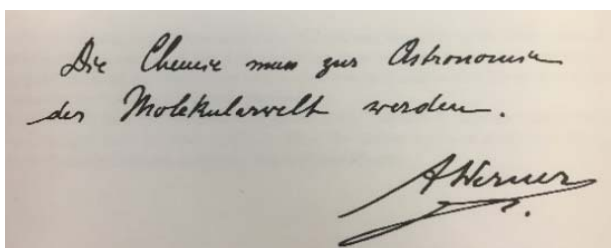 Die Chemie muss zur Astronomie
der Molekularwelt werden.
AWerner